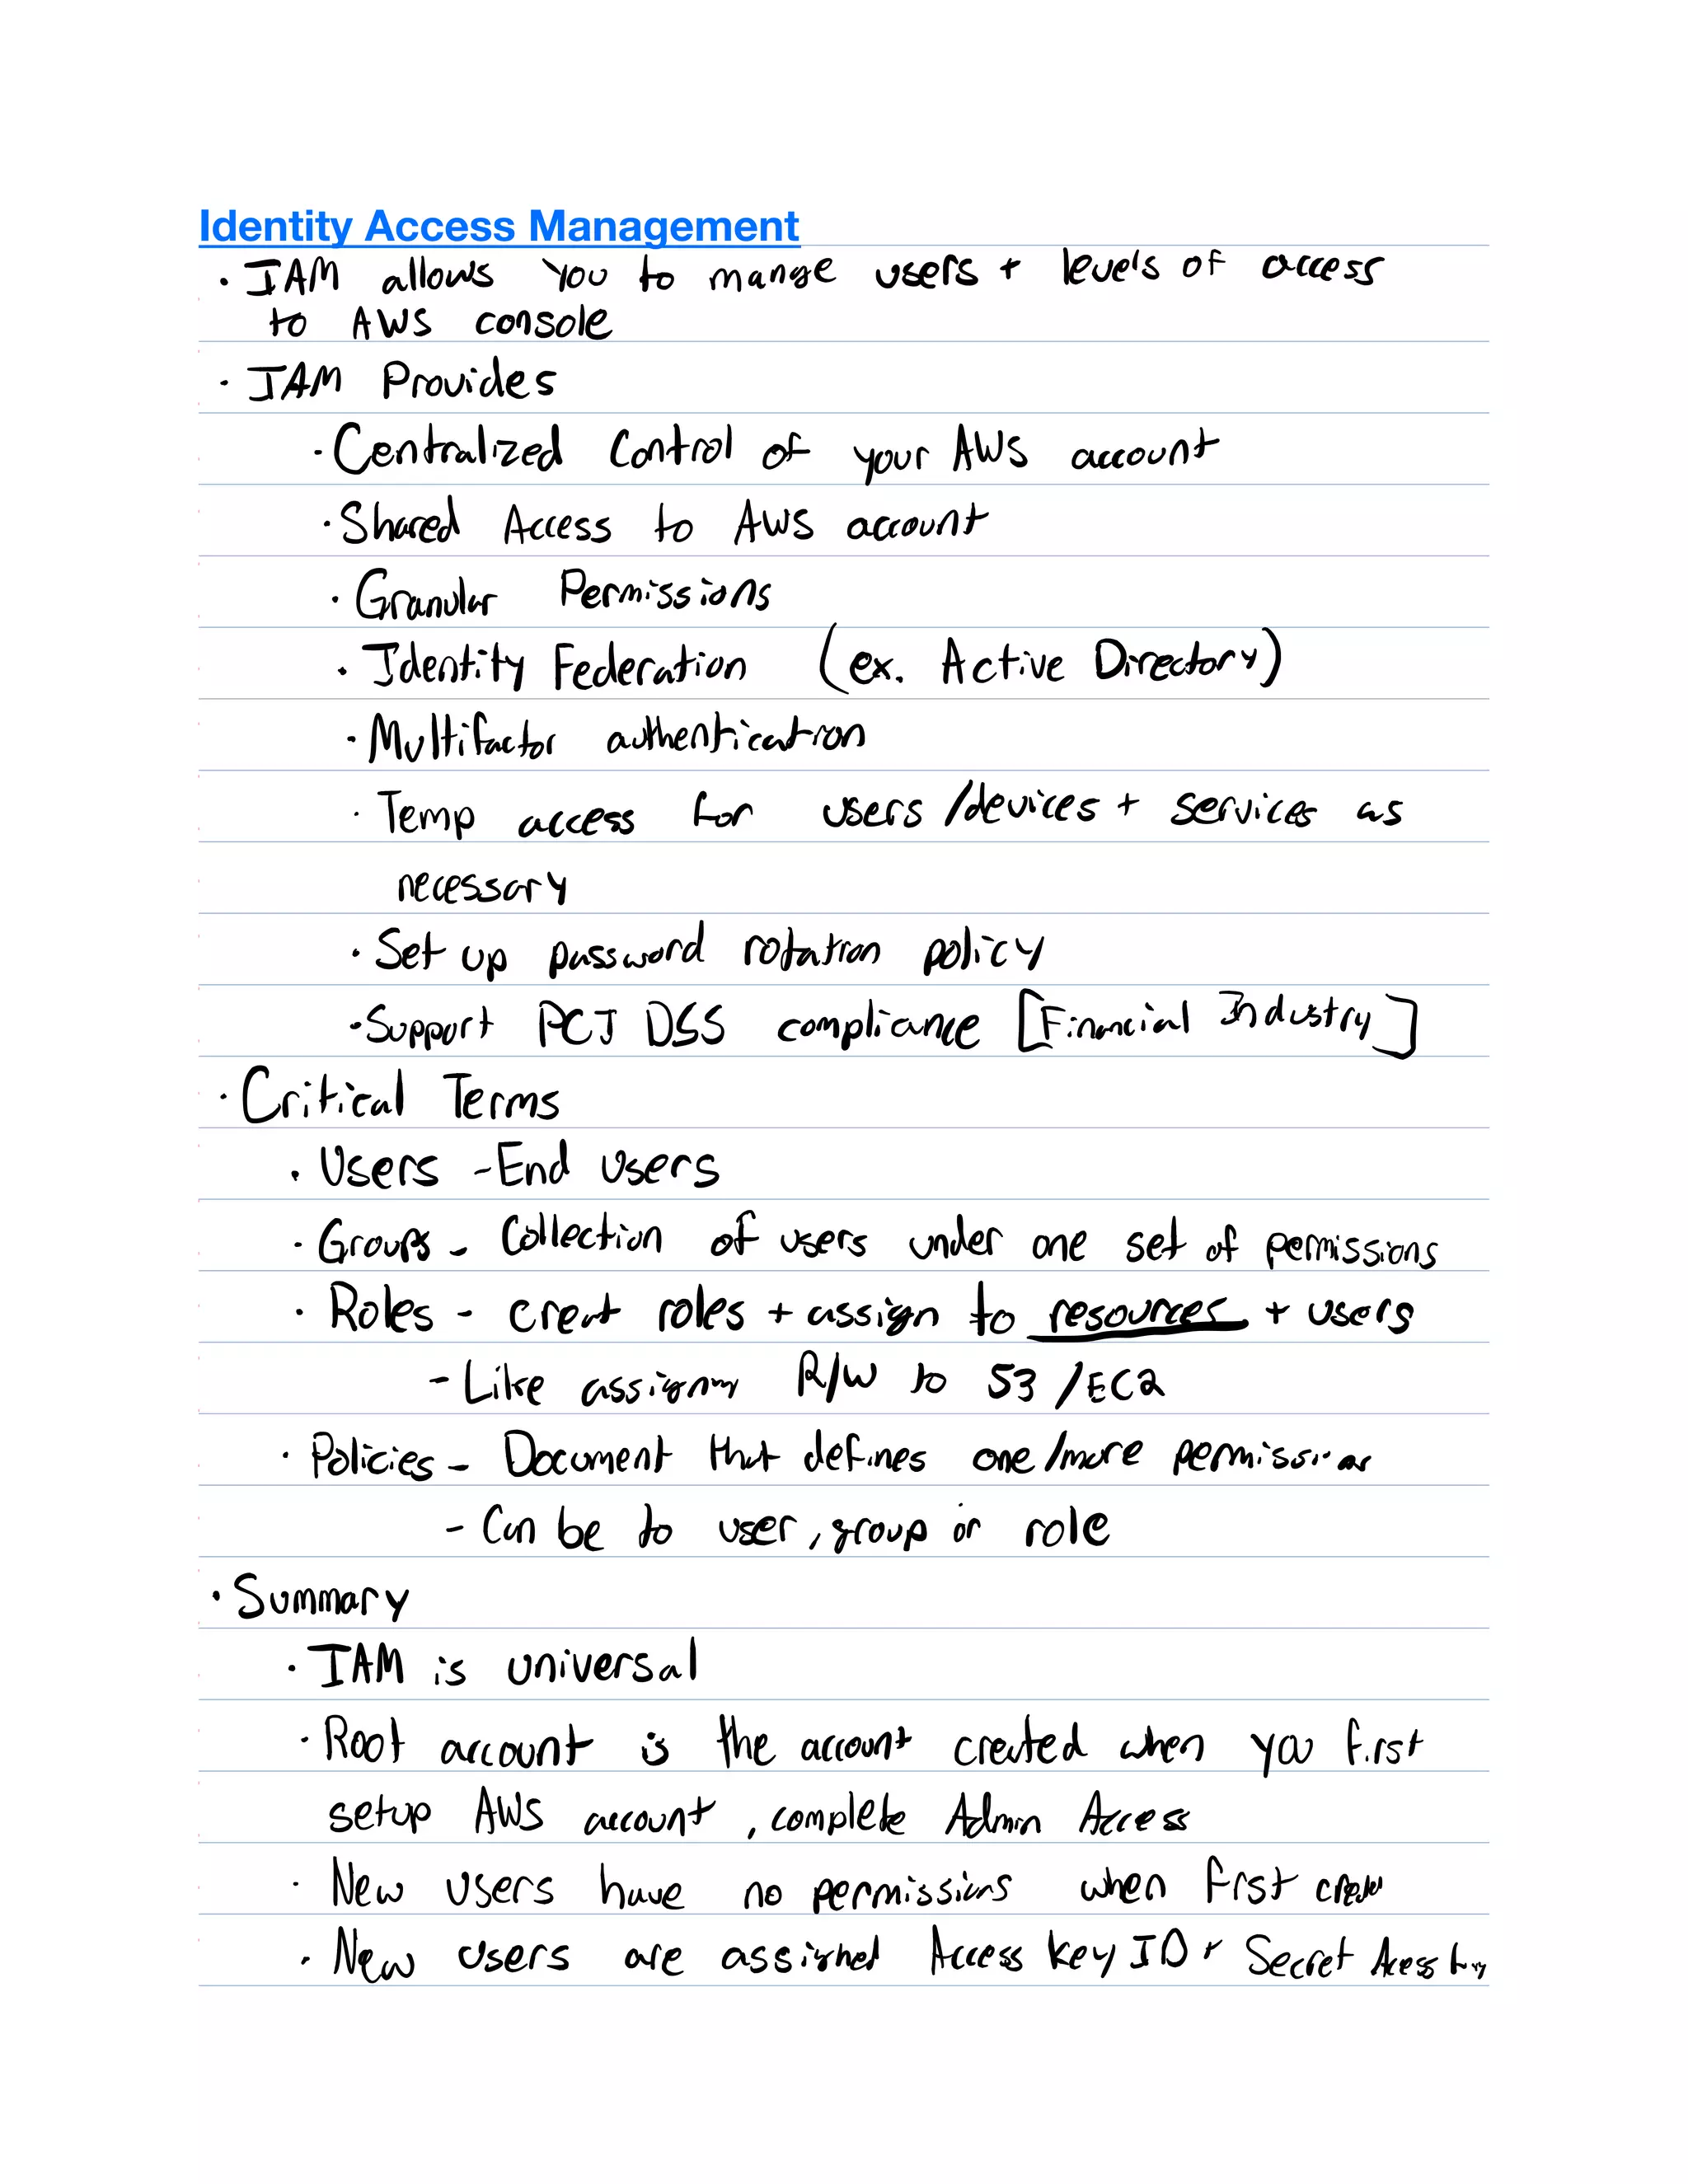 Identity Access Management
· IAM allows you to mange users + levels of access
to AWS console
· IAM Provides
· Centralized Control of your AWS account
· Shared Access to AWS account
· Granular Permissions
· Identity Federation (ex. Active Directory)
· Multifactor authentication
· Temp access for users /devices + services as
necessary
· Set up password rotation policy
· Support PCI DSS compliance [Financial Industry]
· Critical Terms
· Users - End users
· Groups - Collection of users under one set of permissions
· Roles - creat roles + assign to resources + users
- Like assigning R/W to S3 /EC2
· Policies - Document that defines one/more permission
- Can be to user, group or role
· Summary
· IAM is universal
· Root account is the account created when you first
setup AWS account, complete Admin Access
· New users have no permissions when first
· New users are assigned Access Key ID + Secret Acess key